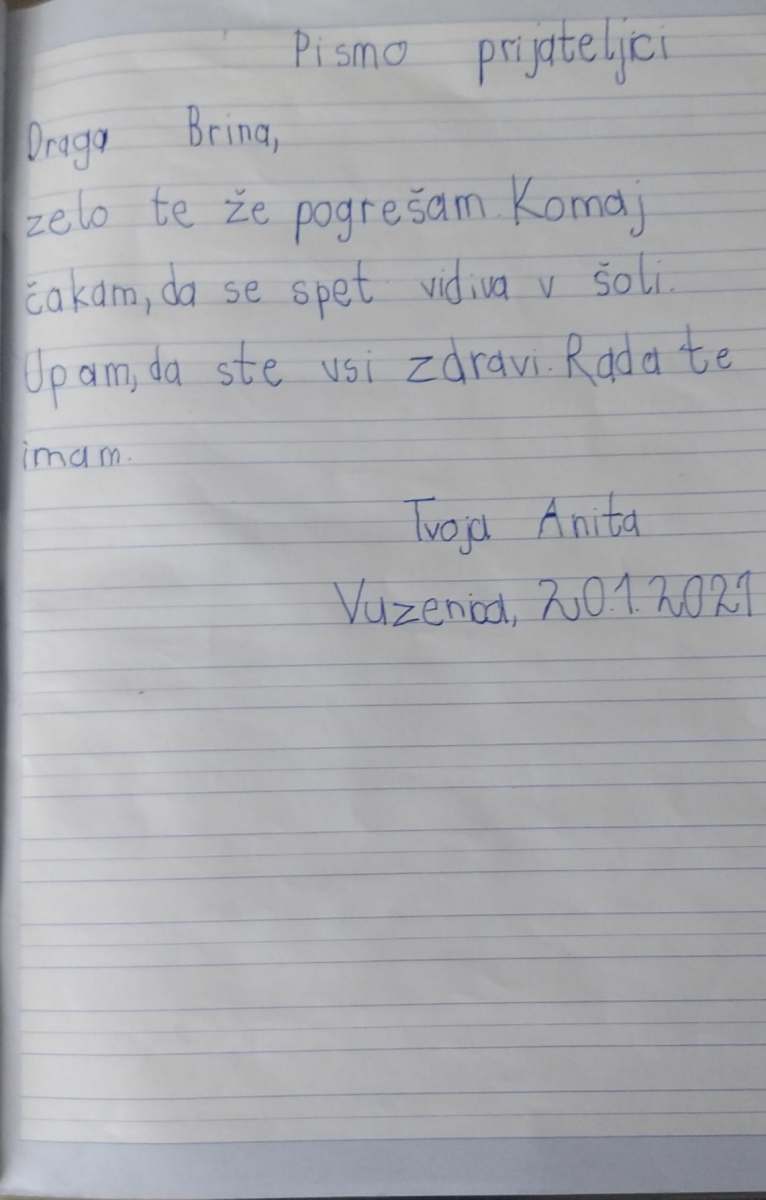 Pismo prijateljici
Draga Brina,
zelo te že pogrešam. Komaj
čakam, da se spet vidiva v šoli.
Upam, da ste vsi zdravi. Rada te
imam.
Tvoja Anita
Vuzenica, 20.1.2021